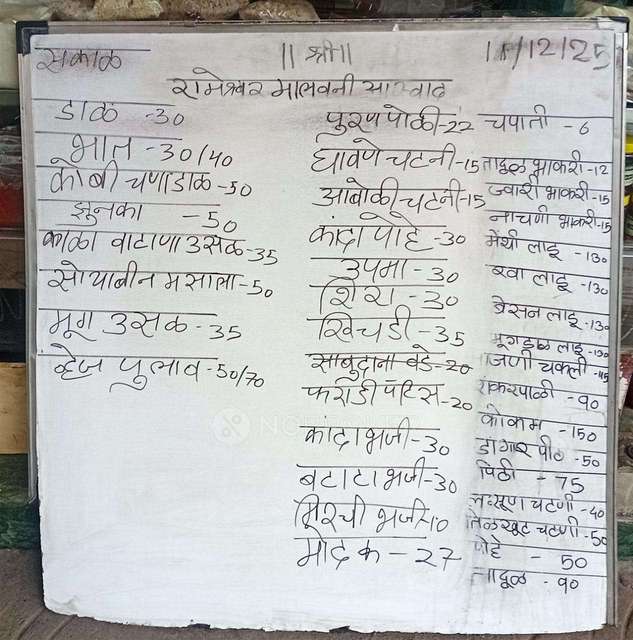 सकाळ
|| श्री ||
11/12/25
रामेश्वर मालवनी आस्वाद
डाळ -30
भात - 30/40
कोबी चणाडाळ -50
झुनका - 50
काळा वाटाणा उसळ -35
सोयाबीन मसाला -50
मूग उसळ - 35
व्हेज पुलाव -50/70
पुरणपोळी -22
घावणे चटनी -15
आंबोळी चटनी -15
कांदा पोहे -30
उपमा -30
शिरा -30
खिचडी -35
साबुदाना वडे -20
फराळी पॅटिस -20
कांदा भजी -30
बटाटा भजी -30
मिरची भजी -10
मोदक - 27
चपाती - 6
तांदूळ भाकरी -12
ज्वारी भाकरी -15
नाचणी भाकरी -15
मेथी लाडू -130
रवा लाडू -130
बेसन लाडू -130
मूगडाळ लाडू -130
भाजणी चकली -45
शंकरपाळी -90
कोकम -150
डांगर पीठ -50
पिठी - 75
लसूण चटणी -40
तिळखूट चटणी -50
पोहे - 50
तांदूळ - 90